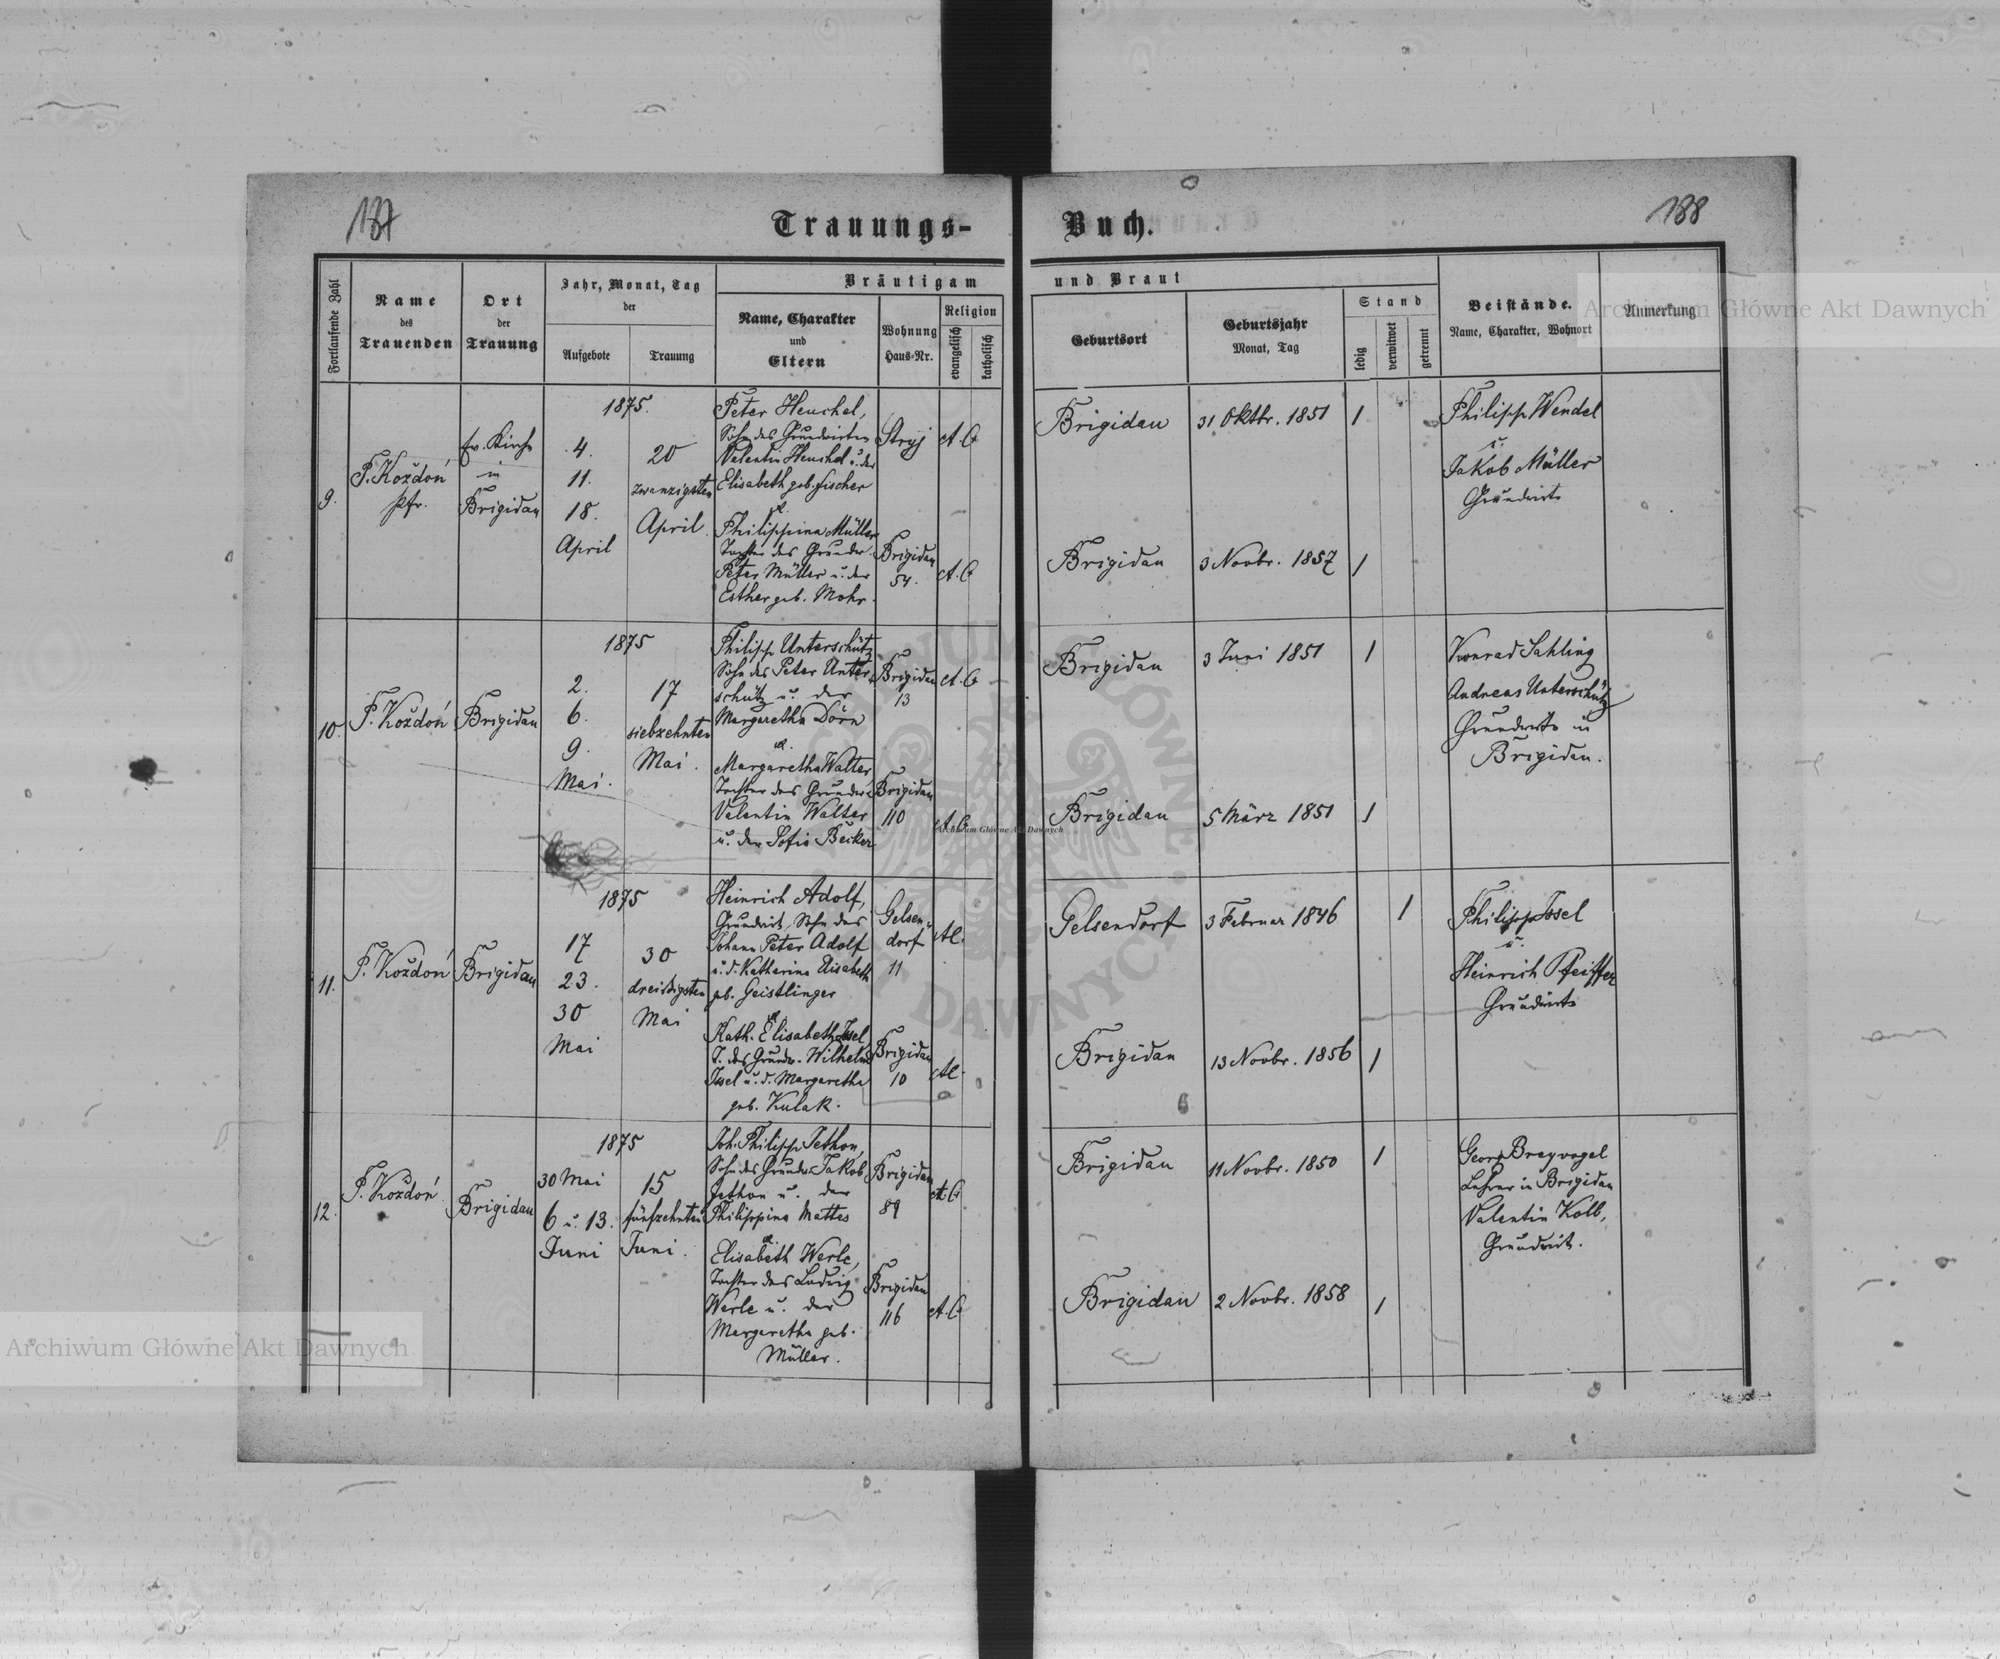 187
Trauungs-
Buch.
188
Fortlaufende Zahl
Name
des
Trauenden
Ort
der
Trauung
Jahr, Monat, Tag
der
Aufgebote
Trauung
Bräutigam
Name, Charakter
und
Eltern
Wohnung
Haus=Nr.
Religion
evangelisch
katholisch
und Braut
Geburtsort
Geburtsjahr
Monat, Tag
Stand
ledig
verwitwet
getrennt
Beistände.
Name, Charakter, Wohnort
Anmerkung
9.
P. Koždoń
Pfr.
Ev. Kirche
in
Brigidau
1875.
4.
11.
18.
April
20
zwanzigsten
April.
Peter Heuchel,
Sohn des Grundwirten
Valentin Heuchel u. der
Elisabeth geb. Fischer
u.
Philippina Müller
Tochter des Grundw.
Peter Müller u. der
Esther geb. Mohr.
Stryj
A. C
Brigidau
54.
A. C
Brigidau
31 Oktbr. 1851
1
Brigidau
3 Novbr. 1857
1
Philipp Wendel
u.
Jakob Müller
Grundwirte
10.
P. Koždoń
Brigidau
1875
2.
6.
9.
Mai.
17
siebzehnten
Mai.
Philipp Unterschütz
Sohn des Peter Unter-
schütz u. der
Margaretha Dörn
u.
Margaretha Walter
Tochter des Grundw.
Valentin Walter
u. der Sofia Becker
Brigidau
13
A. C
Brigidau
110
A. C
Brigidau
3 Juni 1851
1
Brigidau
5 März 1851
1
Konrad Sahling
Andreas Unterschütz
Grundwirte in
Brigidau.
11.
P. Koždoń
Brigidau
1875
17
23.
30
Mai
30
dreißigsten
Mai
Heinrich Adolf,
Grundwirt, Sohn des
Johann Peter Adolf
u. d. Katharina Elisabeth
geb. Geistlinger
u.
Kath. Elisabeth Issel
T. des Grundw. Wilhelm
Issel u. d. Margaretha
geb. Kulak.
Gelsen=
dorf
11
Brigidau
10
Gelsendorf
3 Februar 1846
1
Brigidau
13 Novbr. 1856
1
Philipp Issel
u.
Heinrich Pfeiffer
Grundwirte
12.
P. Koždoń
Brigidau
1875
30 Mai
6 u. 13.
Juni
15
fünfzehnten
Juni.
Joh. Philipp Jethon,
Sohn des Grundw. Jakob
Jethon u. der
Philippina Mattes
u.
Elisabeth Werle,
Tochter des Ludwig
Werle u. der
Margaretha geb.
Müller.
Brigidau
89
A. C
Brigidau
116
A. C
Brigidau
11 Novbr. 1850
1
Brigidau
2 Novbr. 1858
1
Georg Breyvogel
Lehrer in Brigidau
Valentin Kolb,
Grundwirt.
Archiwum Główne Akt Dawnych
Archiwum Główne Akt Dawnych
Archiwum Główne Akt Dawnych